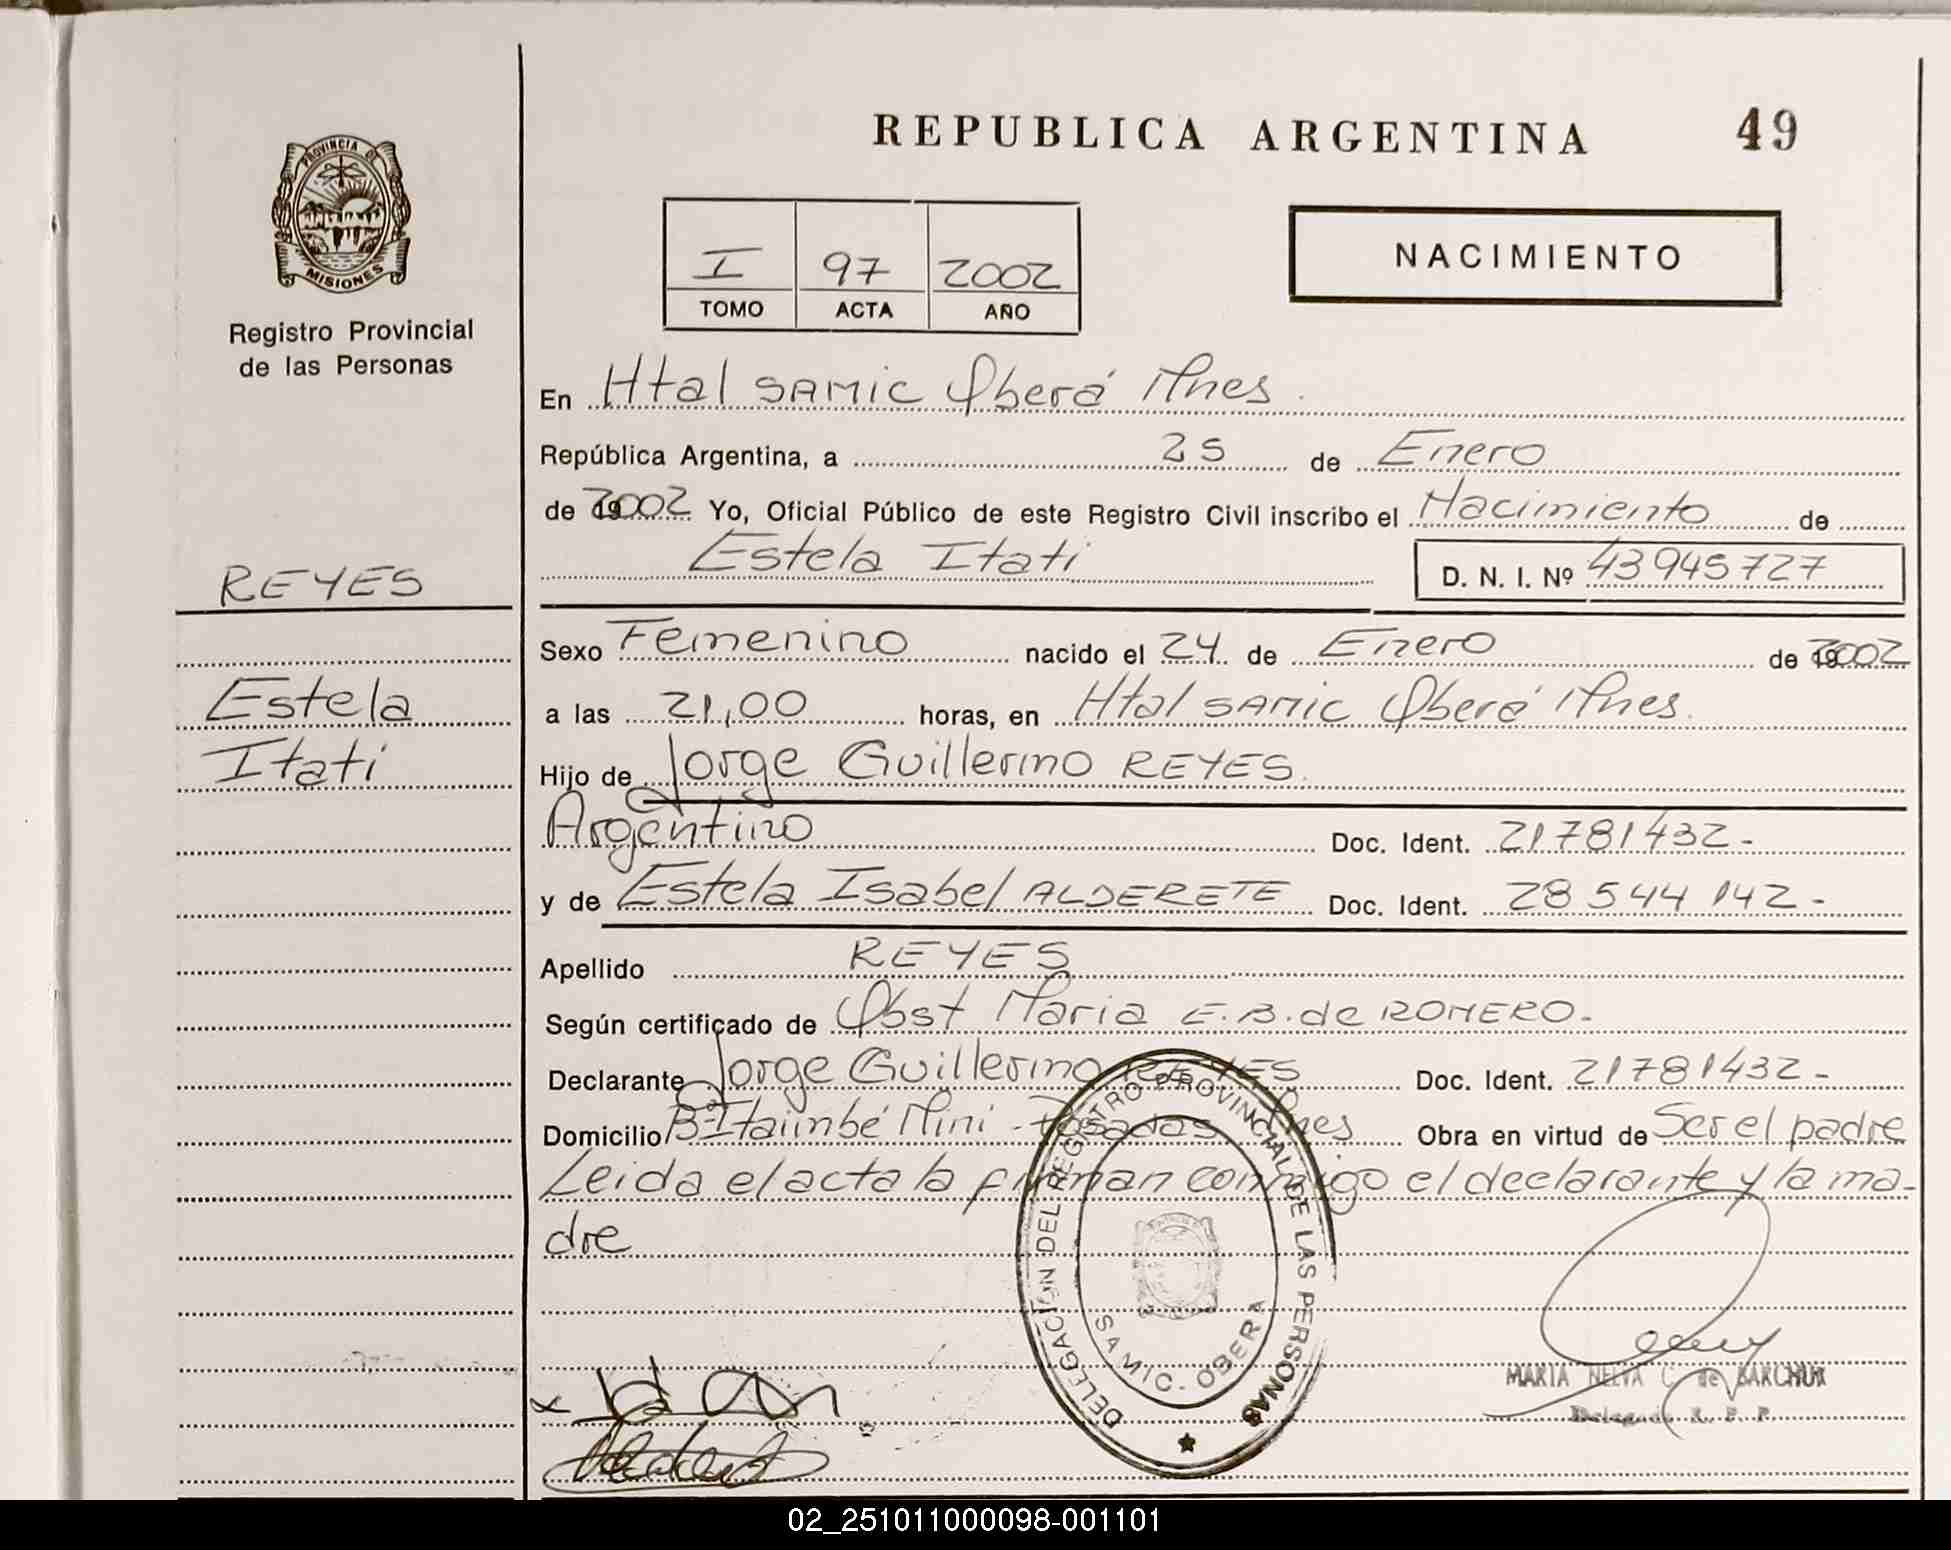 REPUBLICA ARGENTINA 49
PROVINCIA DE
MISIONES
Registro Provincial
de las Personas
I 97 2002
TOMO ACTA AÑO
NACIMIENTO
En Htal SAMIC Oberá Mnes.
República Argentina, a 25 de Enero
de 2002 Yo, Oficial Público de este Registro Civil inscribo el Nacimiento de
Estela Itati D. N. I. Nº 43945727
REYES
Estela
Itati
Sexo Femenino nacido el 24 de Enero de 2002
a las 21,00 horas, en Htal SAMIC Oberá Mnes.
Hijo de Jorge Guillermo REYES.
Argentino Doc. Ident. 21781432-
y de Estela Isabel ALDERETE Doc. Ident. 28544142-
Apellido REYES
Según certificado de Obst Maria E.B. de ROMERO-
Declarante Jorge Guillermo REYES Doc. Ident. 21781432-
Domicilio Bº Itaimbé Mini - Posadas Mnes Obra en virtud de Ser el padre
Leida el acta la firman conmigo el declarante y la ma-
dre
DELEGACION DEL REGISTRO PROVINCIAL DE LAS PERSONAS
SAMIC. OBERA
MARIA NELVA C. de BARCHUK
Delegada R. P. P.
02_251011000098-001101